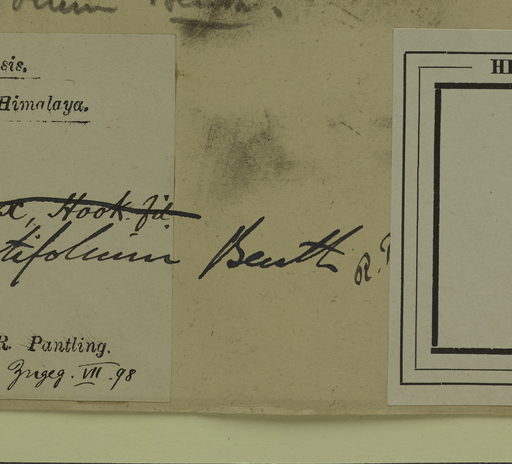 sis.
Himalaya.
x, Hook. fil.
tifolium Benth R.
R. Pantling.
Zugeg. VII. 98
HE